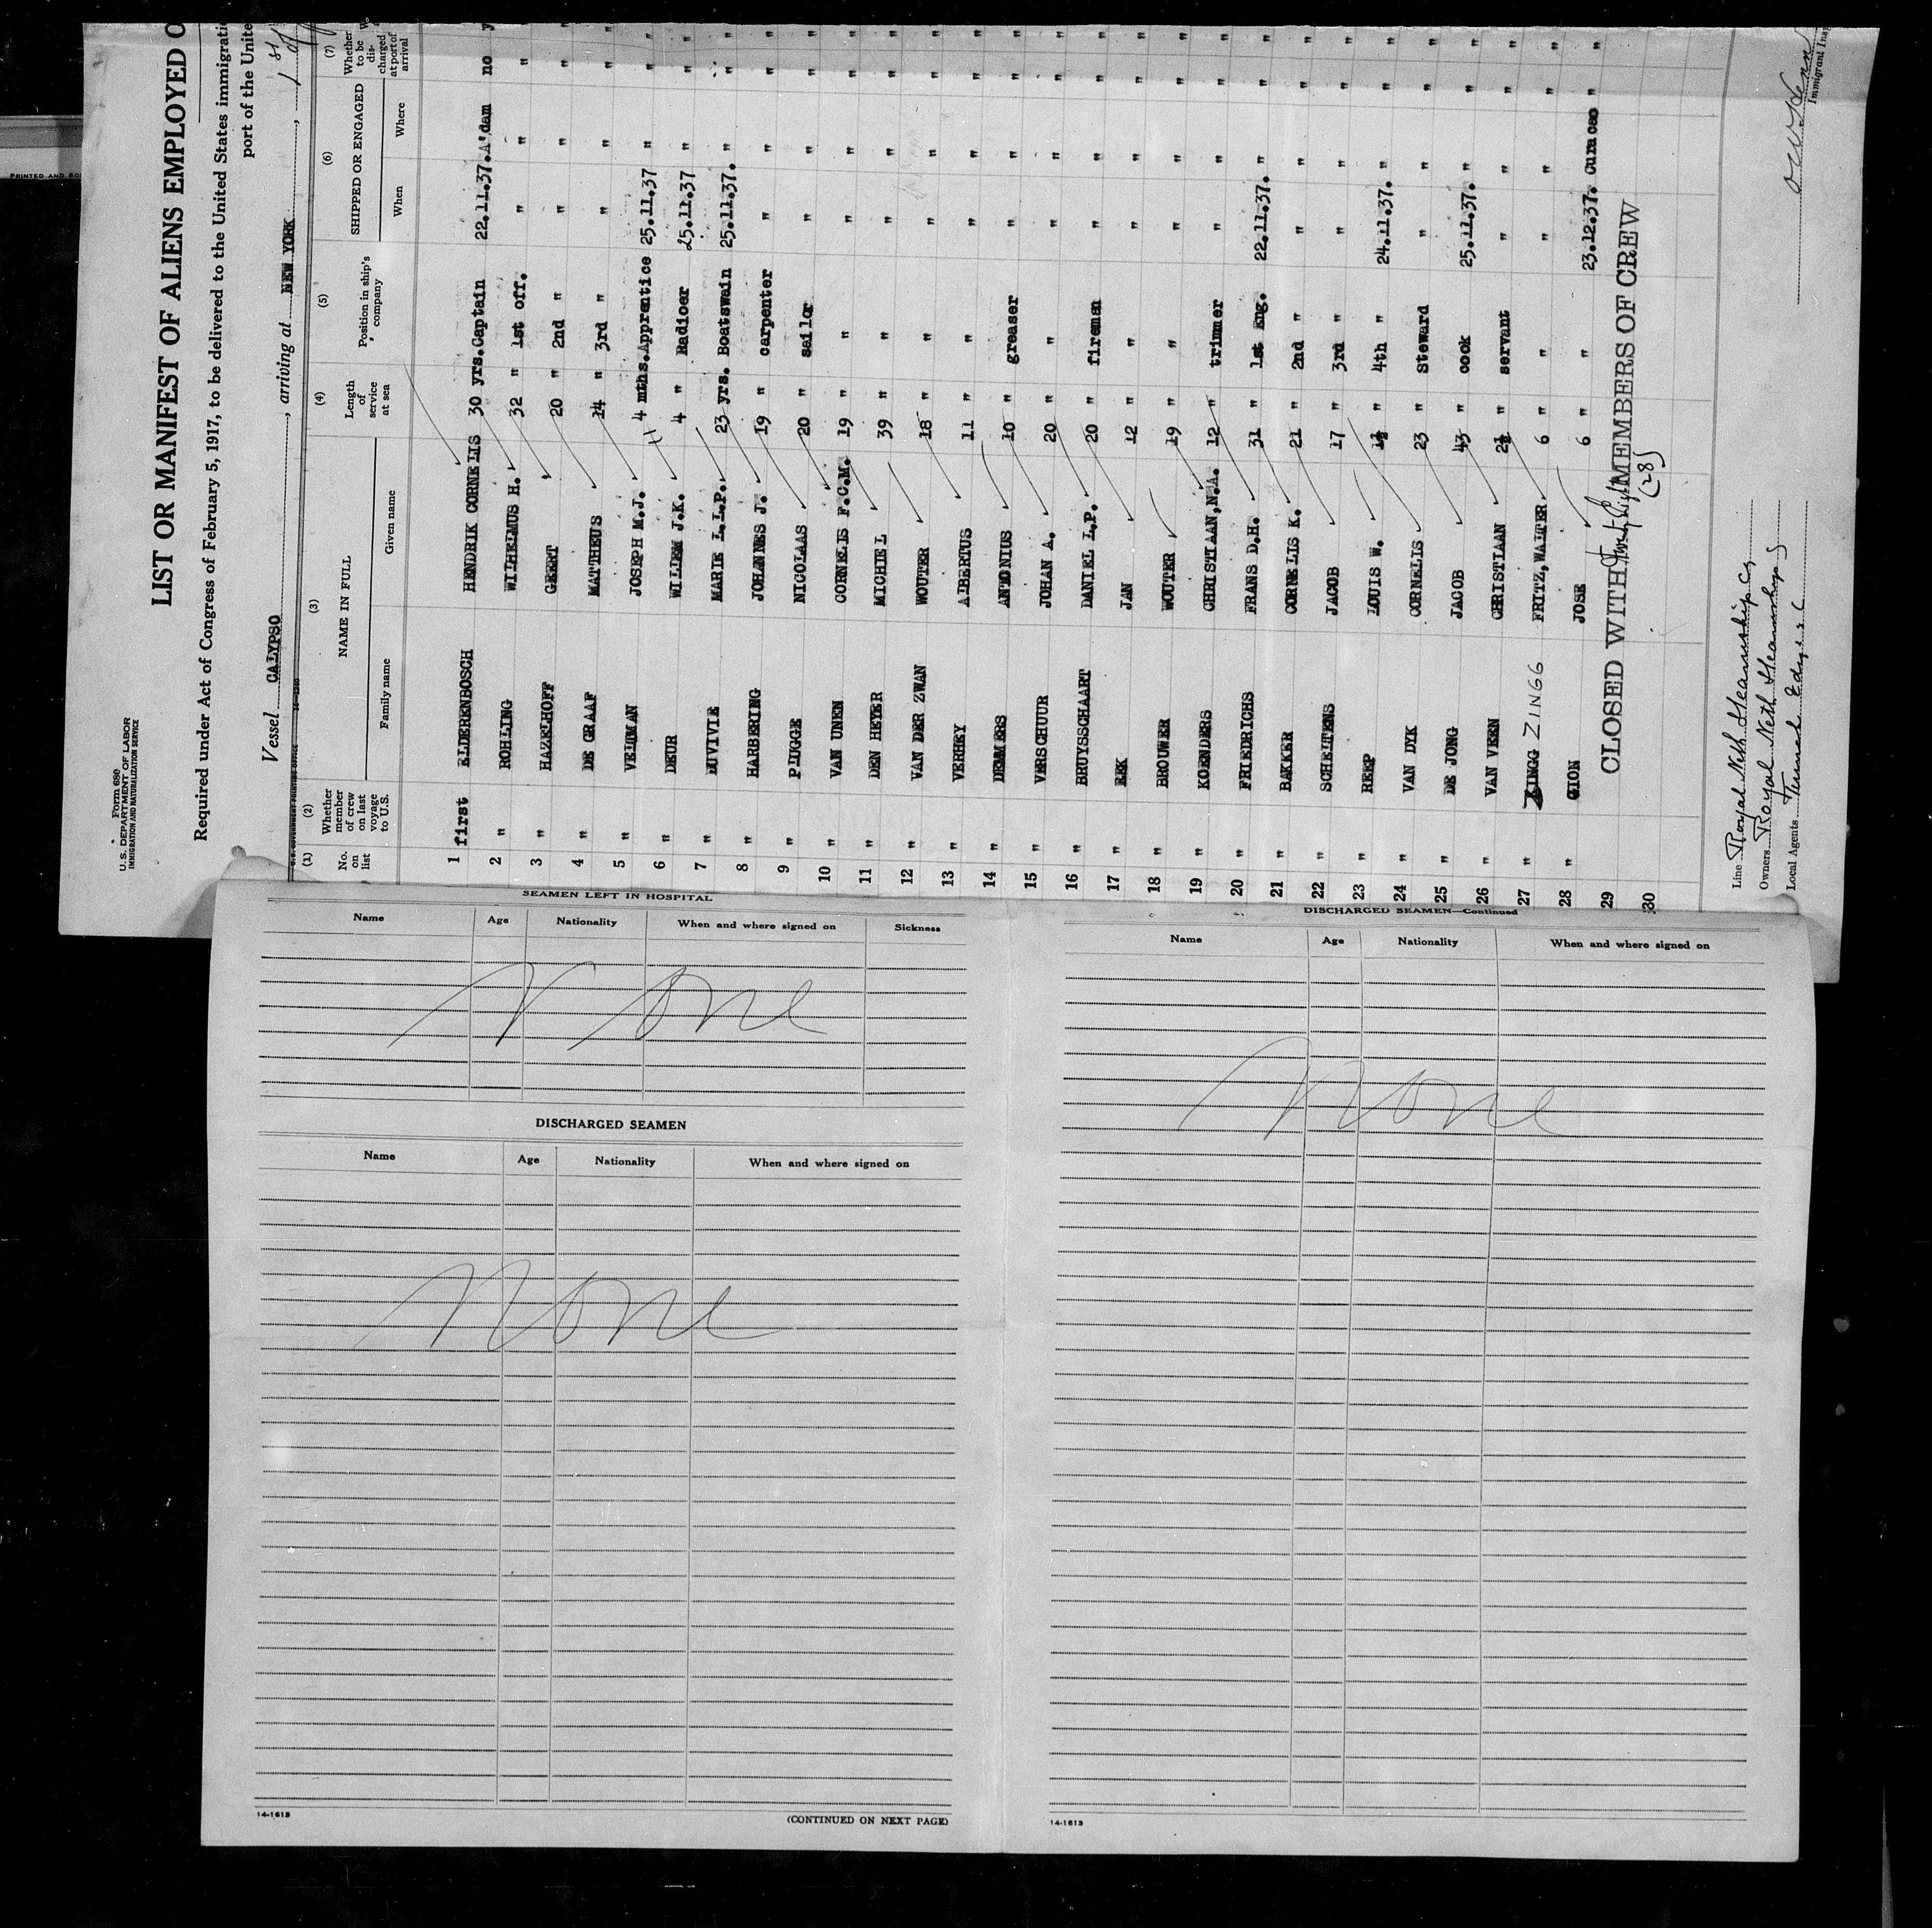 Form 680
U.S. DEPARTMENT OF LABOR
IMMIGRATION AND NATURALIZATION SERVICE
LIST OR MANIFEST OF ALIENS EMPLOYED O
Required under Act of Congress of February 5, 1917, to be delivered to the United States immigrati
port of the Unite
Vessel CALYPSO, arriving at NEW YORK, 1st
(1) (2) (3) (4) (5) (6) (7)
No. on list Whether member of crew on last voyage to U.S. NAME IN FULL Family name Given name Length of service at sea Position in ship's company SHIPPED OR ENGAGED When Where Whether to be discharged at port of arrival
1 first ELDERENBOSCH HENDRIK CORNELIS 30 yrs. Captain 22.11.37. A'dam no y
2 " ROHLING WILHELMUS H. 32 " 1st off. " " "
3 " HAZELHOFF GEERT 20 " 2nd " " " " "
4 " DE GRAAF MATTHEUS 14 " 3rd " " " " "
5 " VELDMAN JOSEPH M.J. 4 mths. Apprentice 25.11.37 " " "
6 " DEUR WILLEM J.K. 4 " Radioer 25.11.37 " " "
7 " DUVIVIE MARIE L.L.P. 23 yrs. Boatswain 25.11.37. " " "
8 " HARBERING JOHANNES J. 19 " carpenter " " " "
9 " PLUGGE NICOLAAS 20 " sailor " " " "
10 " VAN UNEN CORNELIS F.C.M. 19 " " " " " "
11 " DEN HEYER MICHIEL 39 " " " " " "
12 " VAN DER ZWAN WOUTER 18 " " " " " "
13 " VERHEY ALBERTUS 11 " " " " " "
14 " DEMMERS ANTONIUS 10 " greaser " " " "
15 " VERSCHUUR JOHAN A. 20 " " " " " "
16 " BRUYSSCHAART DANIEL L.P. 20 " fireman " " " "
17 " EEK JAN 12 " " " " " "
18 " BROUWER WOUTER 19 " " " " " "
19 " KOENDERS CHRISTIAAN,N.A. 12 " trimmer " " " "
20 " FRIEDRICHS FRANS D.H. 31 " 1st Eng. 22.11.37. " " "
21 " BAKKER CORNELIS K. 21 " 2nd " " " " "
22 " SCHELTENS JACOB 17 " 3rd " " " " "
23 " REEP LOUIS W. 1½ " 4th " 24.11.37. " " "
24 " VAN DYK CORNELIS 23 " Steward " " " "
25 " DE JONG JACOB 43 " cook 25.11.37. " " "
26 " VAN VEEN CHRISTIAAN 2½ " servant " " " "
27 " ZINGG FRITZ,WALTER 6 " " " " " "
28 " GION JOSE 6 " " 23.12.37. Curacao " "
29 CLOSED WITH MEMBERS OF CREW
30 (28)
Line Royal Neth Steamship Co
Owners Royal Neth Steamship
Local Agents
Immigrant Insp
SEAMEN LEFT IN HOSPITAL
Name Age Nationality When and where signed on Sickness
None
DISCHARGED SEAMEN
Name Age Nationality When and where signed on
None
14-1613
(CONTINUED ON NEXT PAGE)
DISCHARGED SEAMEN—Continued
Name Age Nationality When and where signed on
None
14-1613